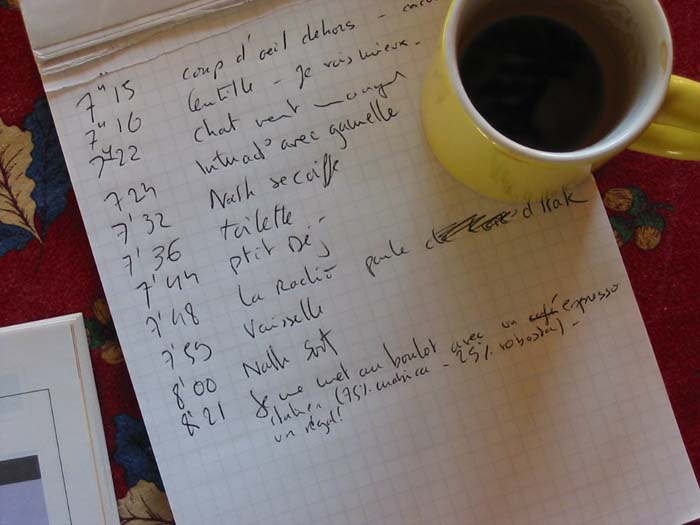 7h15 coup d'œil dehors -
7h16 lentille - Je vois mieux -
7h22 chat veut manger
7'24 Intrusado avec gamelle
7'32 Nath se coiffe
7'36 toilette
7'44 ptit Déj
7'48 La Radio parle d'Irak
7'55 Vaisselle
8'00 Nath sort
8'21 Je me met au boulot avec un expresso
italien (75% arabica - 25% robosta) -
un régal!